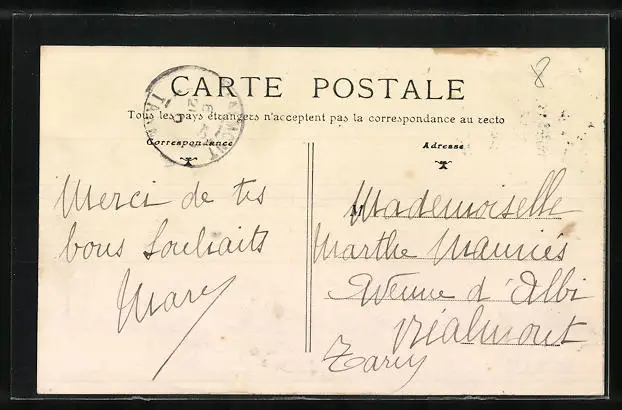 8
CARTE POSTALE
Tous les pays étrangers n'acceptent pas la correspondance au recto
Correspondance
Adresse
Merci de tes
bons souhaits
Mary
Mademoiselle
Marthe Mauriès
Avenue d'Albi
Réalmont
Tarn